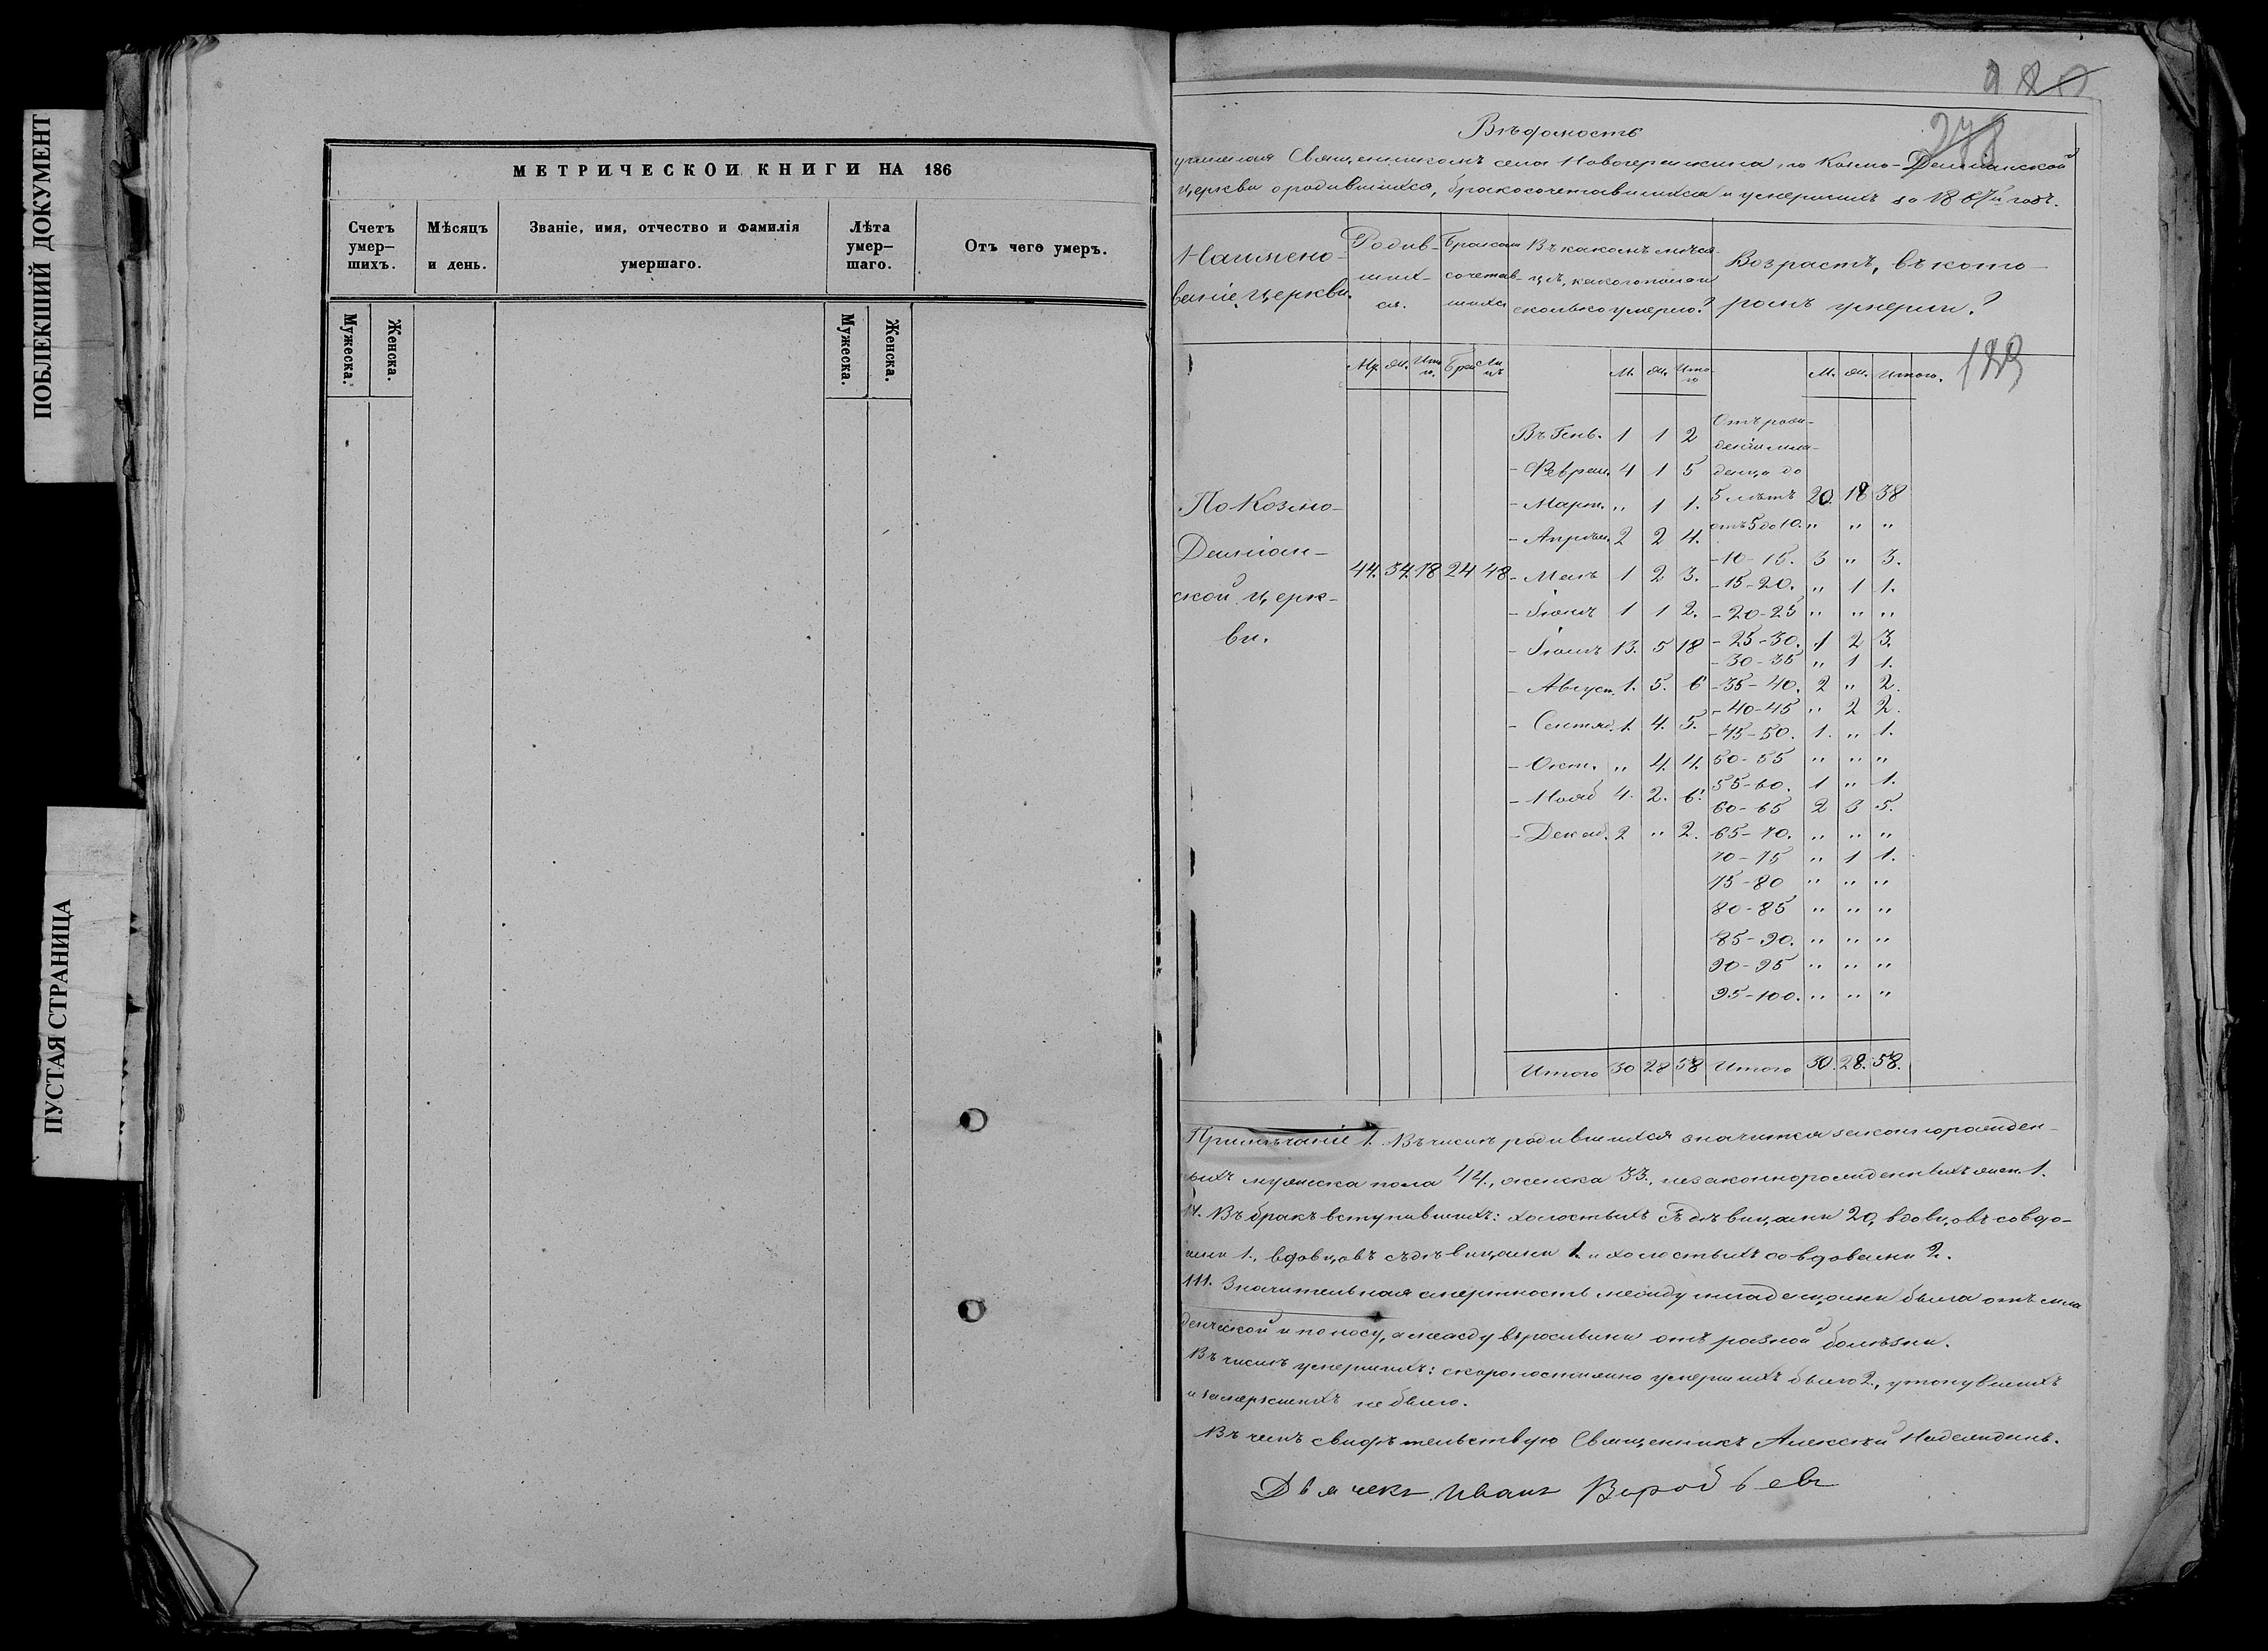 ПОБЛЕКШИЙ ДОКУМЕНТ
ПУСТАЯ СТРАНИЦА
МЕТРИЧЕСКОЙ КНИГИ НА 186
Счетъ умер–шихъ.
Мѣсяцъ и день.
Званіе, имя, отчество и фамилія умершаго.
Лѣта умер–шаго.
Отъ чего умеръ.
Мужеска.
Женска.
Мужеска.
Женска.
280
278
Вѣдомость
учиненная Священникомъ села по Космо-Даміанской
церкви о родившихся, бракосочетавшихся и умершихъ за 1867й годъ.
Наимено-
ваніе церкви.
Родив-
ших-
ся.
Бракосо
сочетав-
шихся
Въ какомъ мѣся-
цѣ, какого пола и
сколько умерло?
Возрастъ, въ кото-
ромъ умерли?
129
М. Ж. Ито го. Брак Ли цъ
М. Ж. Ито го
М. Ж. Итого.
По Козмо-
Даміан-
ской церк-
ви.
44. 34. 78 24 48
Въ Генв. 1 1 2
- Феврал. 4 1 5
- Март. „ 1 1.
- Апрѣл. 2 2 4.
- Маѣ 1 2 3.
- Іюнѣ 1 1 2.
- Іюлѣ 13. 5 18
- Август. 1. 5. 6
- Сентяб. 1. 4. 5.
- Окт. „ 4. 4.
- Нояб 4. 2. 6.
- Декаб. 2 „ 2.
Итого 30 28 58
Отъ рож-
денія мла-
денца до
5 лѣтъ 20. 18 38
отъ 5 до 10. „ „ „
- 10 - 15. 3 „ 3.
- 15 - 20. „ 1 1.
- 20 - 25 „ „ „
- 25 - 30. 1 2 3.
- 30 - 35 „ 1 1.
- 35 - 40. 2 „ 2.
- 40 - 45 „ 2 2.
- 45 - 50. 1. „ 1.
50 - 55 „ „ „
55 - 60. 1 „ 1.
60 - 65 2 3 5.
65 - 70. „ „ „
70 - 75 „ 1 1.
75 - 80 „ „ „
80 - 85 „ „ „
85 - 90. „ „ „
90 - 95 „ „ „
95 - 100. „ „ „
Итого 30. 28. 58.
Примѣчаніе 1. Въ числѣ родившихся значится законнорожден-
ныхъ мужеска пола 44., женска 33., незаконнорожденныхъ жен. 1.
11. Въ бракъ вступившихъ: холостыхъ съ дѣвицами 20, вдовцовъ со вдо-
вами 1., вдовцовъ съ дѣвицами 1. и холостыхъ со вдовами 2.
111. Значительная смертность между младенцами была отъ мла
денческой и поносу, а между взрослыми отъ разной болѣзни.
Въ числѣ умершихъ: скоропостижно умершихъ было 2., утонувшихъ
и замерзшихъ не было.
Въ чемъ свидѣтельствую Священникъ Алексѣй
Дьячекъ Иванъ Воробьевъ